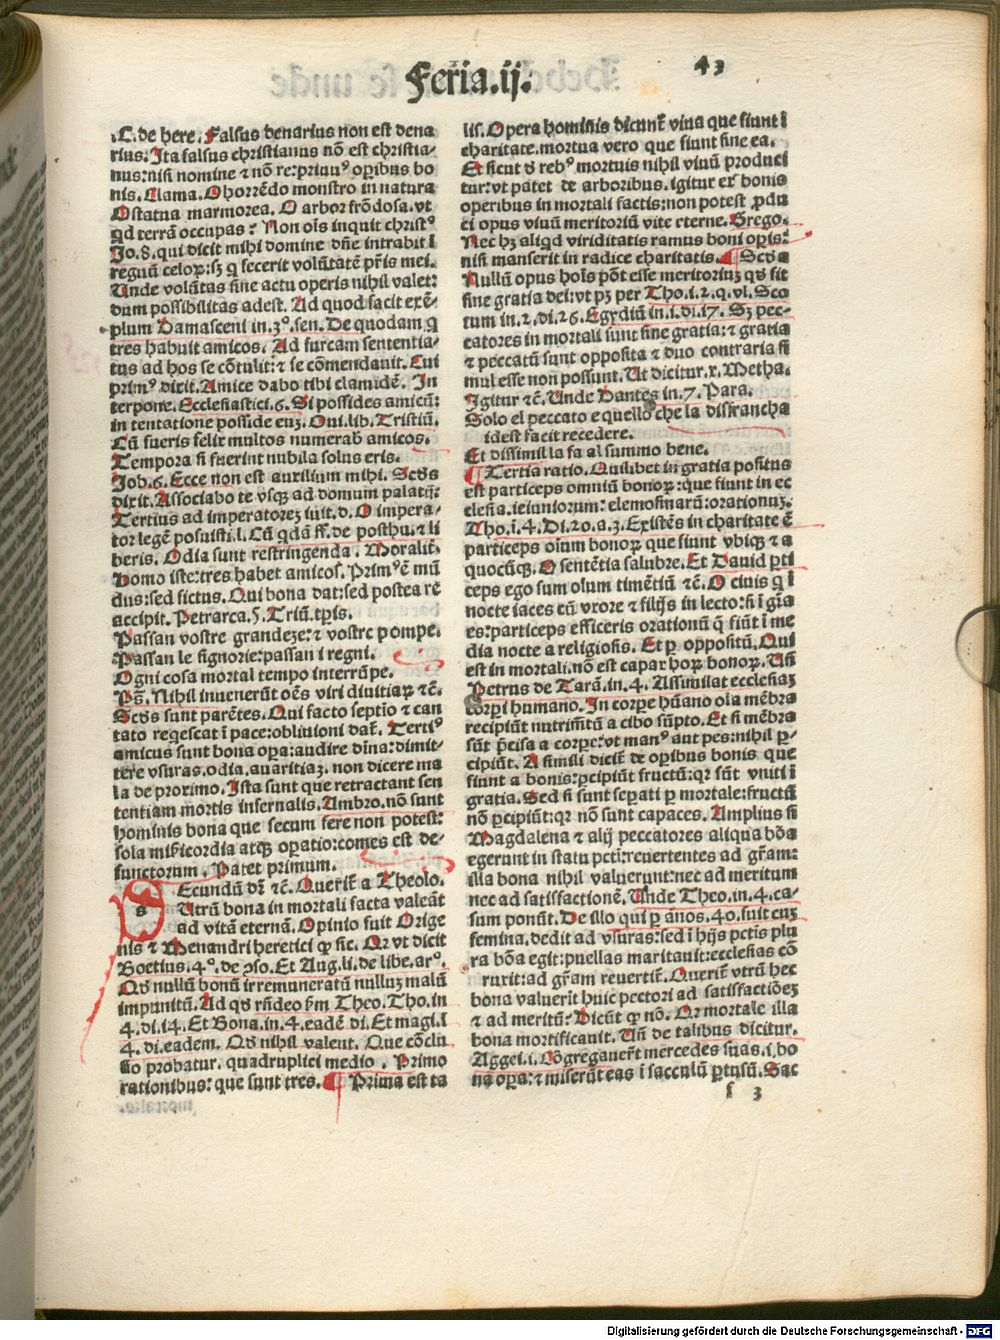 Feria.ij.
43
.C. de here. Falsus denarius non est dena
rius. Ita falsus christianus nõ est christia-
nus: nisi nomine ⁊ nõ re: priuuꝰ oꝑibus bo
nis. Clama. O horrẽdo monstro in natura
O statua marmorea. O arbor frõdosa. vt
qd terrã occupas? Non oĩs inquit christꝰ
Jo. 8. qui dicit mihi domine dñe intrabit ĩ
regnũ celoꝝ: sꝫ q̃ fecerit volũtatẽ pr̃is mei.
Unde volũtas sine actu operis nihil valet:
dum possibilitas adest. Ad quod facit exẽ-
plum Damasceni in. 3º. sen. De quodam q̃
tres habuit amicos. Ad furcam sententia-
tus ad hos se cõtulit: ⁊ se cõmendauit. Cui
primꝰ dixit. Amice dabo tibi clamidẽ. In
terpone. Ecclesiastici. 6. Si possides amicũ:
in tentatione posside euꝫ. Oui. lib. Tristiũ.
Cũ fueris felix multos numerab̃ amicos.
Tempora si fuerint nubila solus eris.
Job. 6. Ecce non est auxilium mihi. Scḋs
dixit. Associabo te vsqꝫ ad domum palatij:
Tertius ad imperatoreꝫ iuit. d. O impera-
tor legẽ posuisti. l. Cũ qdã ff. de posthu. ⁊ li
beris. Odia sunt restringenda. Moralit̃.
Homo iste: tres habet amicos. Primꝰ ẽ mũ
dus: sed fictus. Qui bona dat: sed postea rẽ
accipit. Petrarca. 5. Triũ. tp̃is.
Passan vostre grandeze: ⁊ vostre pompe.
Passan le signorie: passan i regni.
Ogni cosa mortal tempo interrũpe.
Ps̃. Nihil inuenerũt oẽs viri diuitiaꝝ ⁊c̃.
Scḋs sunt parẽtes. Qui facto septĩo ⁊ can
tato reqescat ĩ pace: obliuioni dat̃. Tertiꝰ
amicus sunt bona oꝑa: audire diĩna: dimit-
tere vsuras. odia. auaritiaꝫ. non dicere ma
la de proximo. Ista sunt que retractant sen
tentiam mortis infernalis. Ambro. nõ sunt
hominis bona que secum fere non potest:
sola mĩsericordia atqꝫ oꝑatio: comes est de-
functorum. Patet primum.
Secundũ dr̃ ⁊c̃. Querit̃ a Theolo.
Utrũ bona in mortali facta valeãt
ad vitã eternã. Opinio fuit Orige
nis ⁊ Menandri heretici ꝙ sic. Qr vt dicit
Boetius. 4º. de ꝯso. Et Aug. li. de libe. arº.
Qḋ nullũ bonũ irremuneratũ nulluꝫ malũ
impunitũ. Ad qḋ rñdeo ẜm Theo. Tho. in
4. di. 14. Et Bona. in. 4. eadẽ di. Et magi. ĩ
4. di. eadem. Qḋ nihil valent. Que cõclu
sio probatur. quadruplici medio. Primo
rationibus: que sunt tres. ¶ Prima est ta
lis. Opera hominis dicunt̃ viua que fiunt ĩ
charitate. mortua vero que fiunt sine ea.
Et sicut ḋ rebꝰ mortuis nihil viuũ produci
tur: vt patet de arboribus. igitur ex bonis
operibus in mortali factis: non potest ꝓdu
ci opus viuũ meritoriũ vite eterne. Grego.
Nec hꝫ aliqd viriditatis ramus boni oꝑis:
nisi manserit in radice charitatis. ¶ Scḋa
Nullũ opus hoĩs põt esse meritoriuꝫ qḋ sit
sine gratia dei: vt pꝫ per Tho. i. 2. q. vl. Sco
tum in. 2. di. 26. Egydiũ in. i. di. 17. Sꝫ pec-
catores in mortali sunt sine gratia: ⁊ gratia
⁊ peccatũ sunt opposita ⁊ duo contraria si
mul esse non possunt. Ut dicitur. x. Metha.
Igitur ⁊c̃. Unde Dantes in. 7. Para.
Solo el peccato e quello che la disfrancha
idest facit recedere.
Et dissimil la fa al summo bene.
¶ Tertia ratio. Quilibet in gratia positus
est particeps omniũ bonoꝝ: que fiunt in ec
clesia. ieiuniorum: elemosinarũ: orationuꝫ.
Tho. ĩ. 4. Di. 20. a. 3. Existẽs in charitate ẽ
particeps oĩum bonoꝝ que fiunt vbiqꝫ ⁊ a
quocũqꝫ. O sentẽtia salubre. Et Dauid ꝑti
ceps ego sum olum timẽtiũ ⁊c̃. O ciuis q̃ ĩ
nocte iaces cũ vxore ⁊ filijs in lecto: si ĩ gr̃a
es: particeps efficeris orationũ q̃ fiũt ĩ me
dia nocte a religiosis. Et ꝑ oppositũ. Qui
est in mortali. nõ est capax hoꝝ bonoꝝ. Uñ
Petrus de Tarã. in. 4. Assimilat ecclesiaꝫ
corpi humano. In corpe hũano oĩa mẽbra
recipiũt nutrimẽtũ a cibo sũpto. Et si mẽbra
sũt p̃cisa a corpe: vt manꝰ aut pes: nihil ꝑ-
cipiũt. A simili dicit̃ de oꝑibus bonis que
fiunt a bonis: ꝑcipiũt fructũ: qr sũt vniti ĩ
gratia. Sed si sunt seꝑati ꝑ mortale: fructũ
nõ ꝑcipiũt: qr nõ sunt capaces. Amplius si
Magdalena ⁊ alij peccatores aliqua bõa
egerunt in statu pctĩ: reuertentes ad gr̃am:
illa bona nihil valuerunt: nec ad meritum
nec ad satisfactionẽ. Unde Theo. in. 4. ca-
sum ponũt. De illo qui ꝑ ãnos. 40. fuit cuꝫ
femina. dedit ad vsuras: sed ĩ hijs pctis plu
ra bõa egit: puellas maritauit: ecclesias cõ
rurit: ad gr̃am reuertit̃. Querit̃ vtrũ hec
bona valuerit huic pectori ad satisfactiõeꝫ
⁊ ad meritũ: Dicũt ꝙ nõ. Qr mortale illa
bona mortificauit. Uñ de talibus dicitur.
Aggei. i. Cõgregauer̃t mercedes suas. i. bo
na oꝑa: ⁊ miserũt eas ĩ sacculũ ꝑtusũ. Sac
f 3
Digitalisierung gefördert durch die Deutsche Forschungsgemeinschaft - DFG